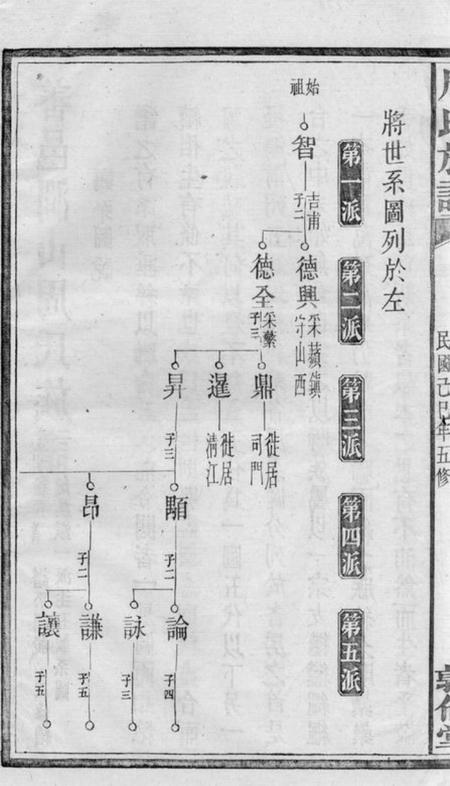 將世系圖列於左
第一派
第二派
第三派
第四派
第五派
始祖
智
吉甫
子二
德興
采蘋鎮
守山西
德全
采蘩
子三
鼎
徙居
司門
暹
徙居
清江
昇
子三
顒
子二
昂
子二
論
子四
詠
子三
謙
子五
讓
子五
氏族譜
民國己巳年五修
敦倫堂